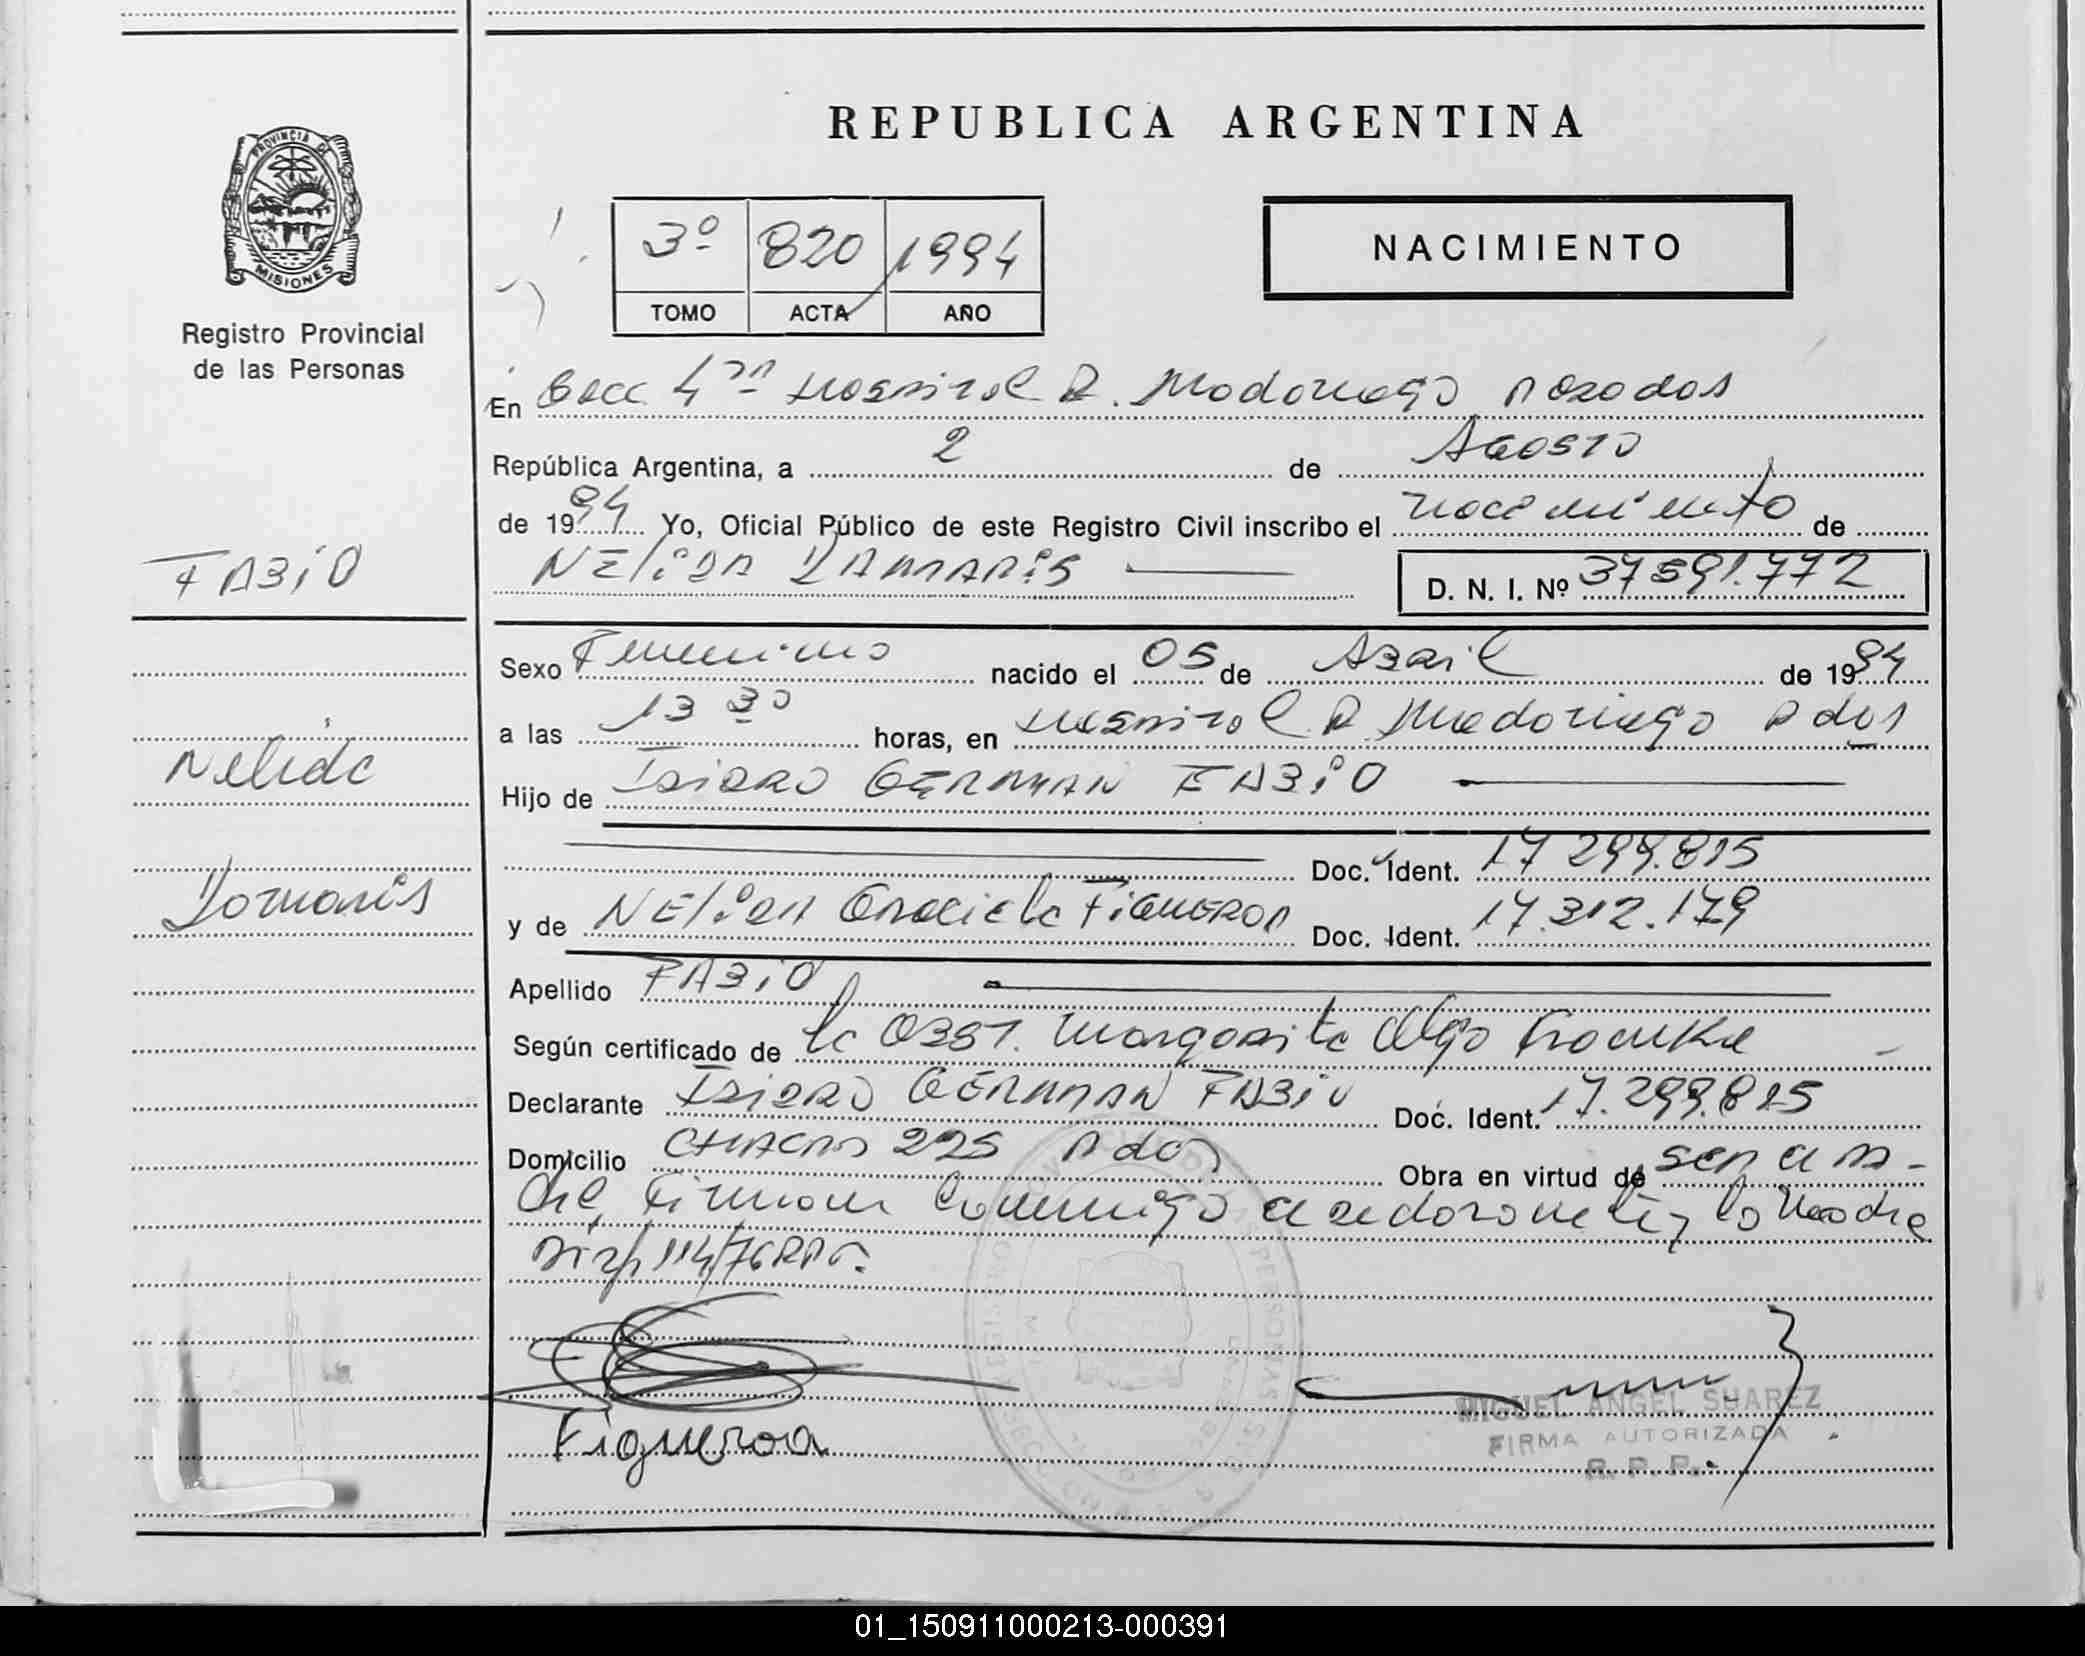 REPUBLICA ARGENTINA
PROVINCIA DE MISIONES
Registro Provincial
de las Personas
3º 820 1994
TOMO ACTA AÑO
NACIMIENTO
En Secc 4ta Hospital R. Madariaga Posadas
República Argentina, a 2 de Agosto
de 1994 Yo, Oficial Público de este Registro Civil inscribo el nacimiento de
NEliDA DAMARiS
D. N. I. Nº 37591.772
FABiO
Nelida
Damaris
Sexo Femenino nacido el 05 de Abril de 1994
a las 13 30 horas, en Hospital R. Madariaga Pdas
Hijo de ISiDRO GERMAN FABiO
Doc. Ident. 17 299.815
y de NEliDA Graciela FiGUEROA Doc. Ident. 17.312.179
Apellido FABiO
Según certificado de la Obst. Margarita Olga
Declarante ISiDRO GERMAN FABiO Doc. Ident. 17.299.815
Domicilio CHACO 225 Pdas Obra en virtud de ser el pa-
dre, Firman Conmigo el declarante y la Madre
Disp 114/76 RPP.
Figueroa
MIGUEL ANGEL SUAREZ
FIRMA AUTORIZADA
R. P. P.
01_150911000213-000391